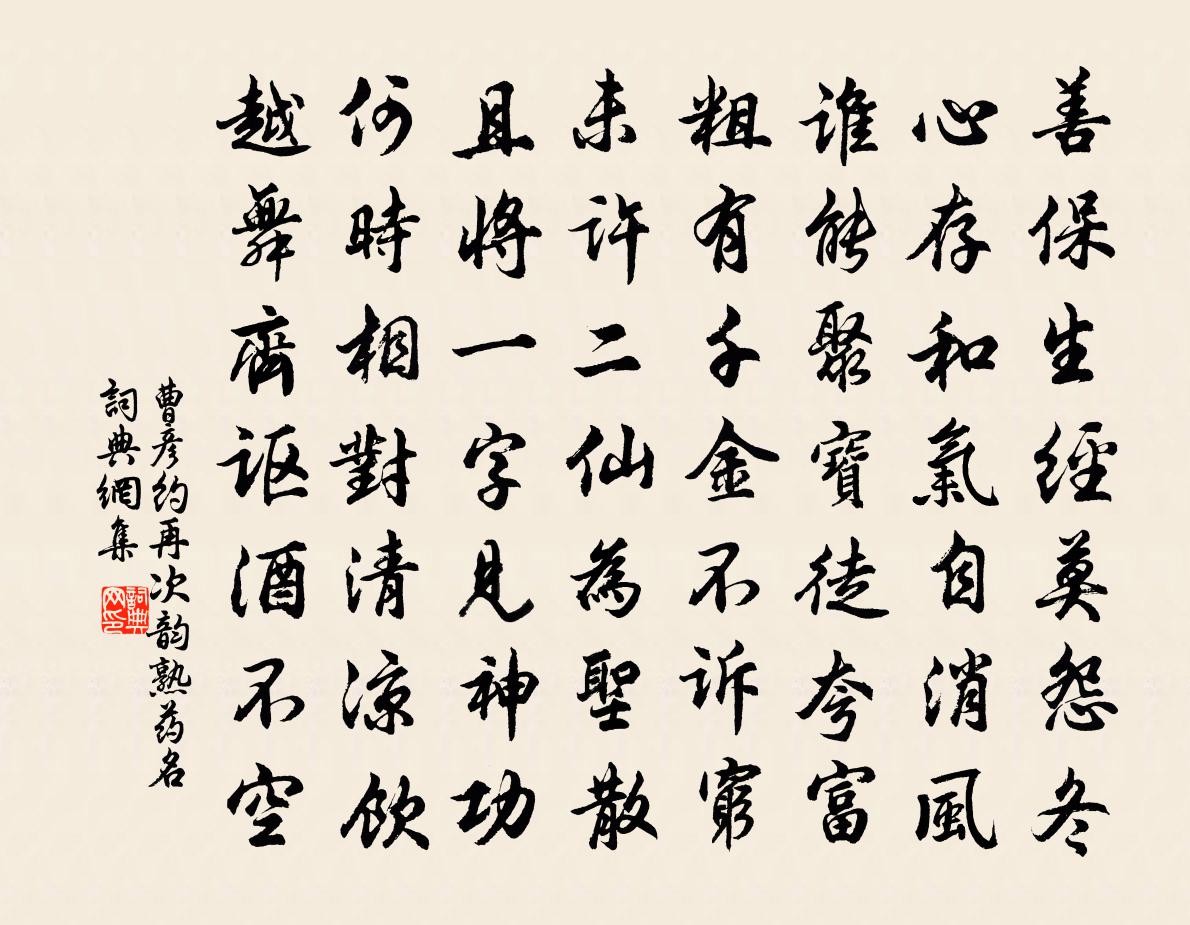 善保生經莫怨冬
心存和氣自消風
誰能聚寶徒夸富
粗有千金不诉窮
未許二仙為聖散
且將一字見神功
何時相對清涼飲
越舞齊讴酒不空
曹彦约再次韵熟药名
詞典網集
詞典网印